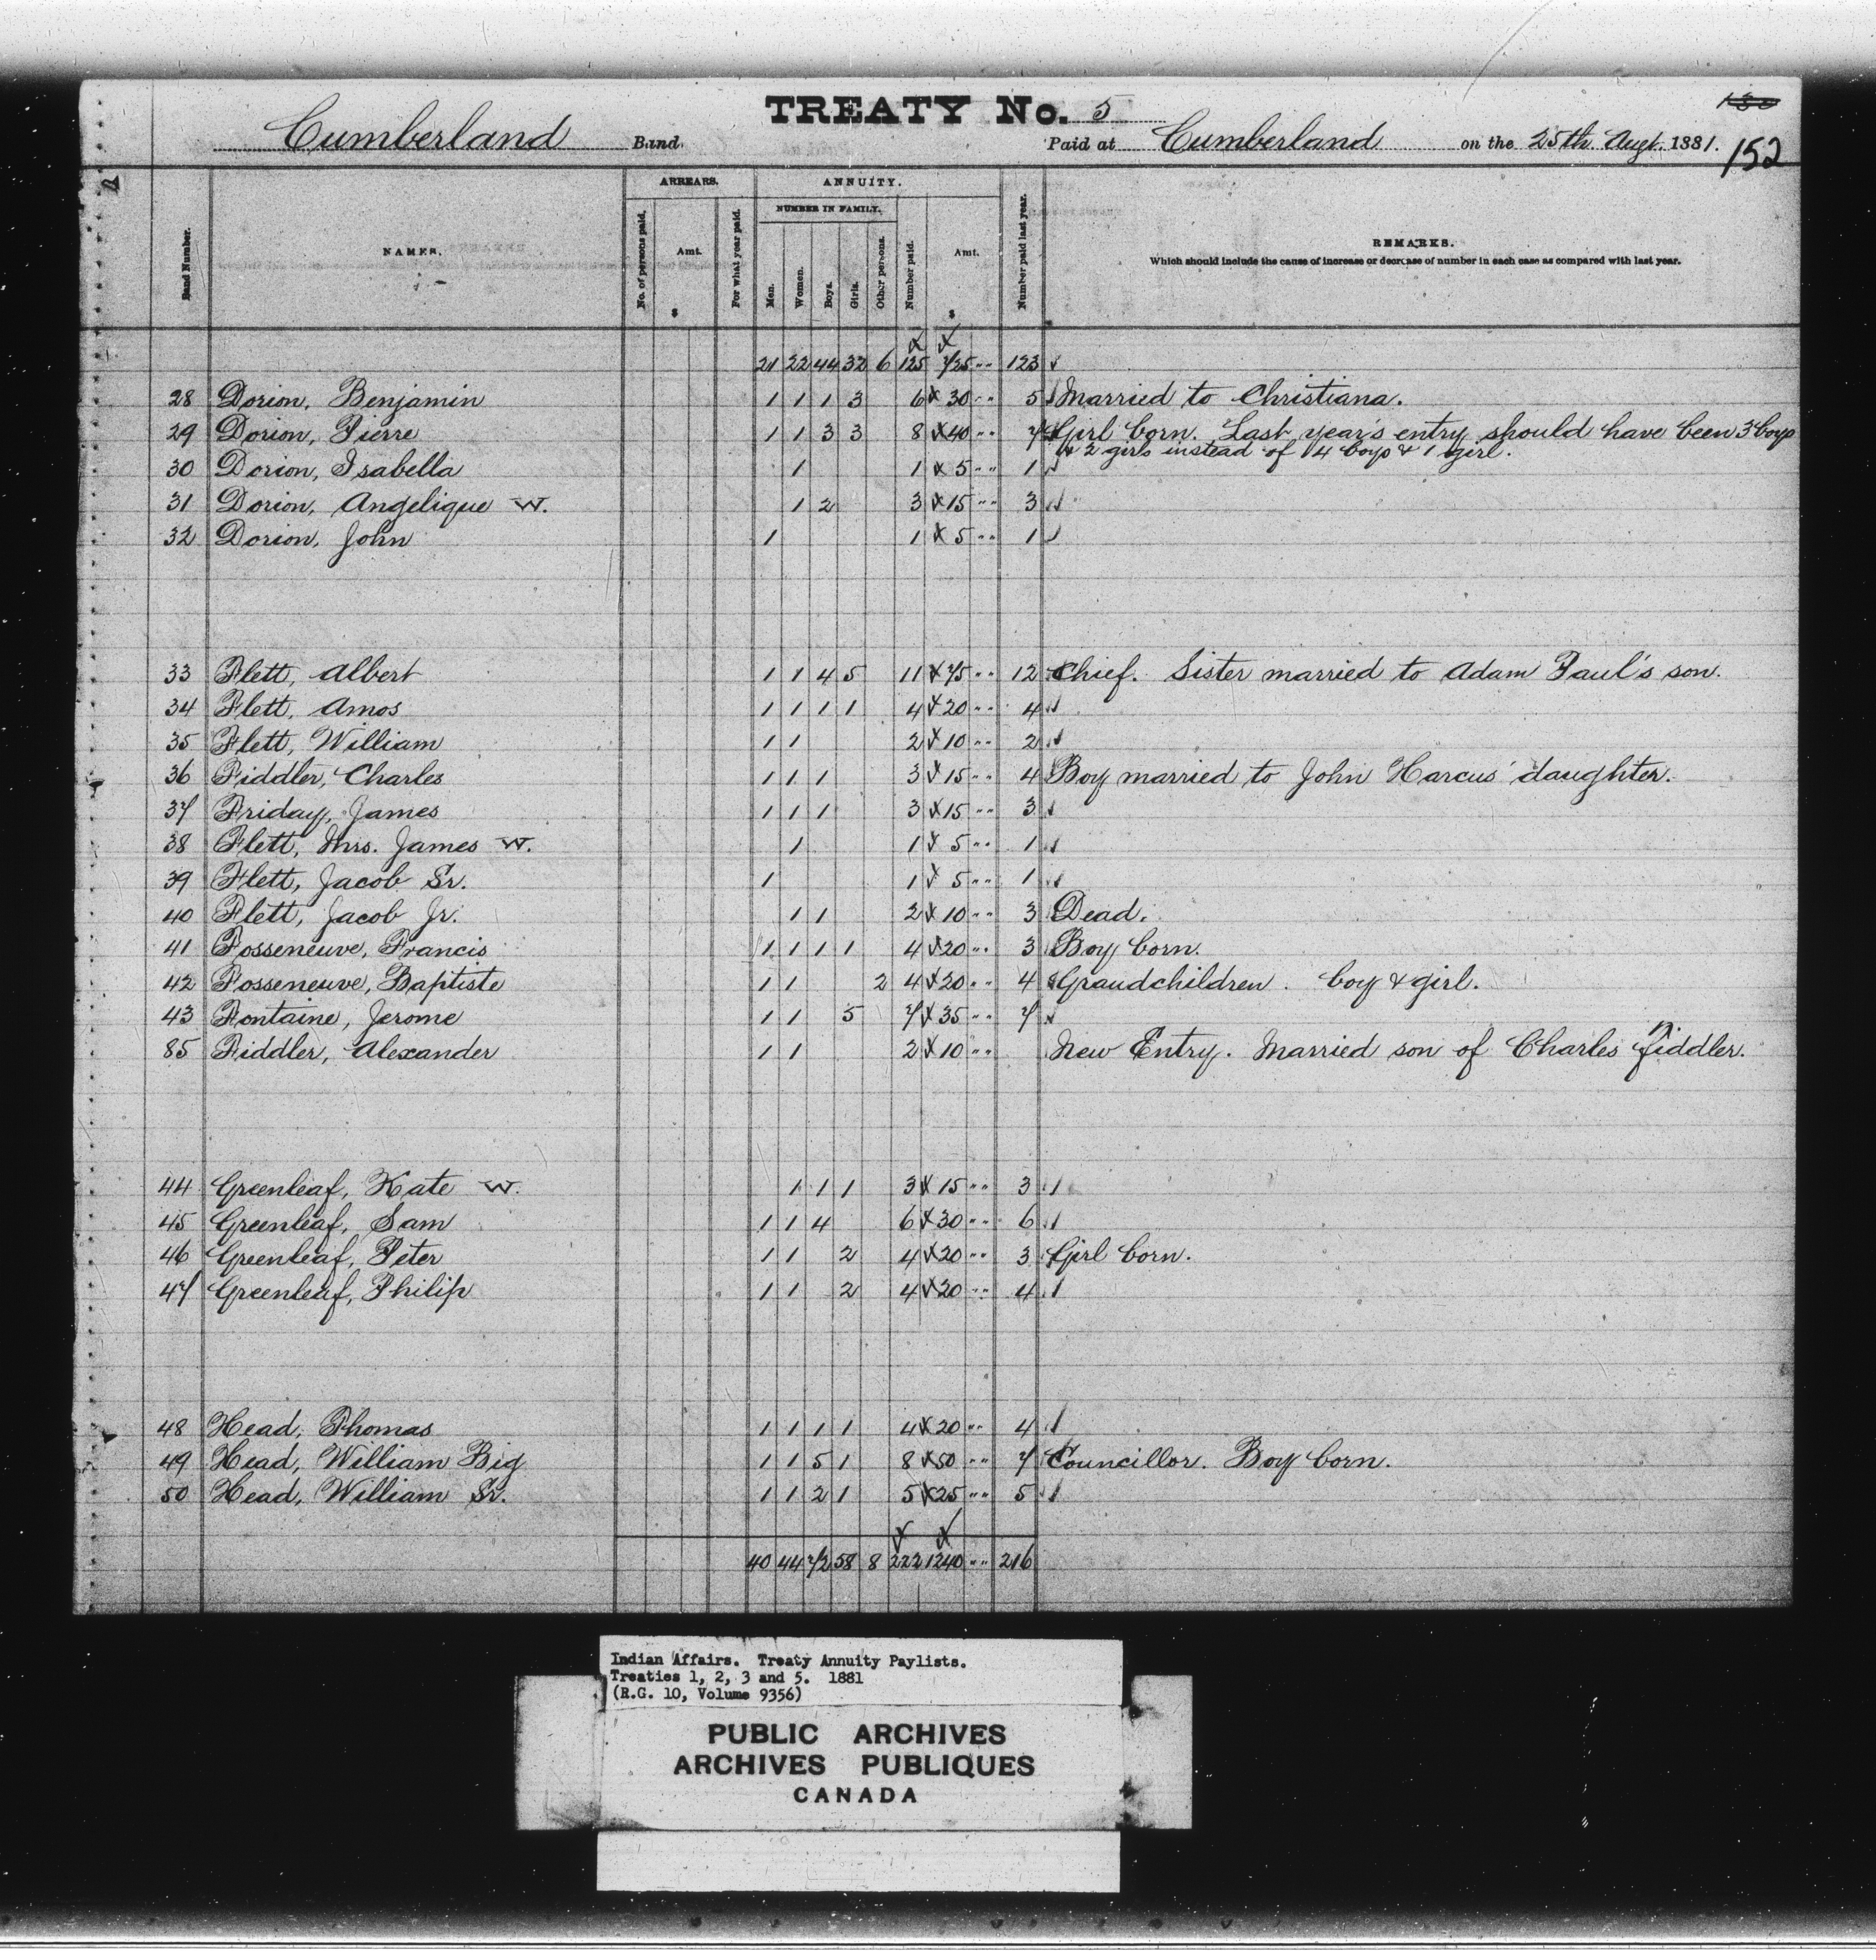 TREATY No. 5
152
Cumberland Band. Paid at Cumberland on the 25th Augt. 1881.
ARREARS. ANNUITY.
NUMBER IN FAMILY.
Band Number. NAMES. No. of persons paid. Amt. $ For what year paid. Men. Women. Boys. Girls. Other persons. Number paid. Amt. $ Number paid last year. REMARKS.
Which should include the cause of increase or decrease of number in each case as compared with last year.
21 22 44 32 6 125 725 " 123
28 Dorion, Benjamin 1 1 1 3 6 30 " 5 Married to Christiana.
29 Dorion, Pierre 1 1 3 3 8 40 " 7 Girl born. Last year's entry should have been 3 boys
& 2 girls instead of 4 boys & 1 girl.
30 Dorion, Isabella 1 1 5 " 1
31 Dorion, Angelique W. 1 2 3 15 " 3
32 Dorion, John 1 1 5 " 1
33 Flett, Albert 1 1 4 5 11 75 " 12 Chief. Sister married to Adam Paul's son.
34 Flett, Amos 1 1 1 1 4 20 " 4
35 Flett, William 1 1 2 10 " 2
36 Fiddler, Charles 1 1 1 3 15 " 4 Boy married to John Harcus' daughter.
37 Friday, James 1 1 1 3 15 " 3
38 Flett, Mrs. James W. 1 1 5 " 1
39 Flett, Jacob Sr. 1 1 5 " 1
40 Flett, Jacob Jr. 1 1 2 10 " 3 Dead.
41 Fosseneuve, Francis 1 1 1 1 4 20 " 3 Boy born.
42 Fosseneuve, Baptiste 1 1 2 4 20 " 4 Grandchildren. boy & girl.
43 Fontaine, Jerome 1 1 5 7 35 " 7
85 Fiddler, Alexander 1 1 2 10 " New Entry. Married son of Charles Fiddler.
44 Greenleaf, Kate W. 1 1 1 3 15 " 3
45 Greenleaf, Sam 1 1 4 6 30 " 6
46 Greenleaf, Peter 1 1 2 4 20 " 3 Girl born.
47 Greenleaf, Philip 1 1 2 4 20 " 4
48 Head, Thomas 1 1 1 1 4 20 " 4
49 Head, William Big 1 1 5 1 8 50 " 7 Councillor. Boy born.
50 Head, William Sr. 1 1 2 1 5 25 " 5
40 44 72 58 8 222 1240 " 216
Indian Affairs. Treaty Annuity Paylists.
Treaties 1, 2, 3 and 5. 1881
(R.G. 10, Volume 9356)
PUBLIC ARCHIVES
ARCHIVES PUBLIQUES
CANADA